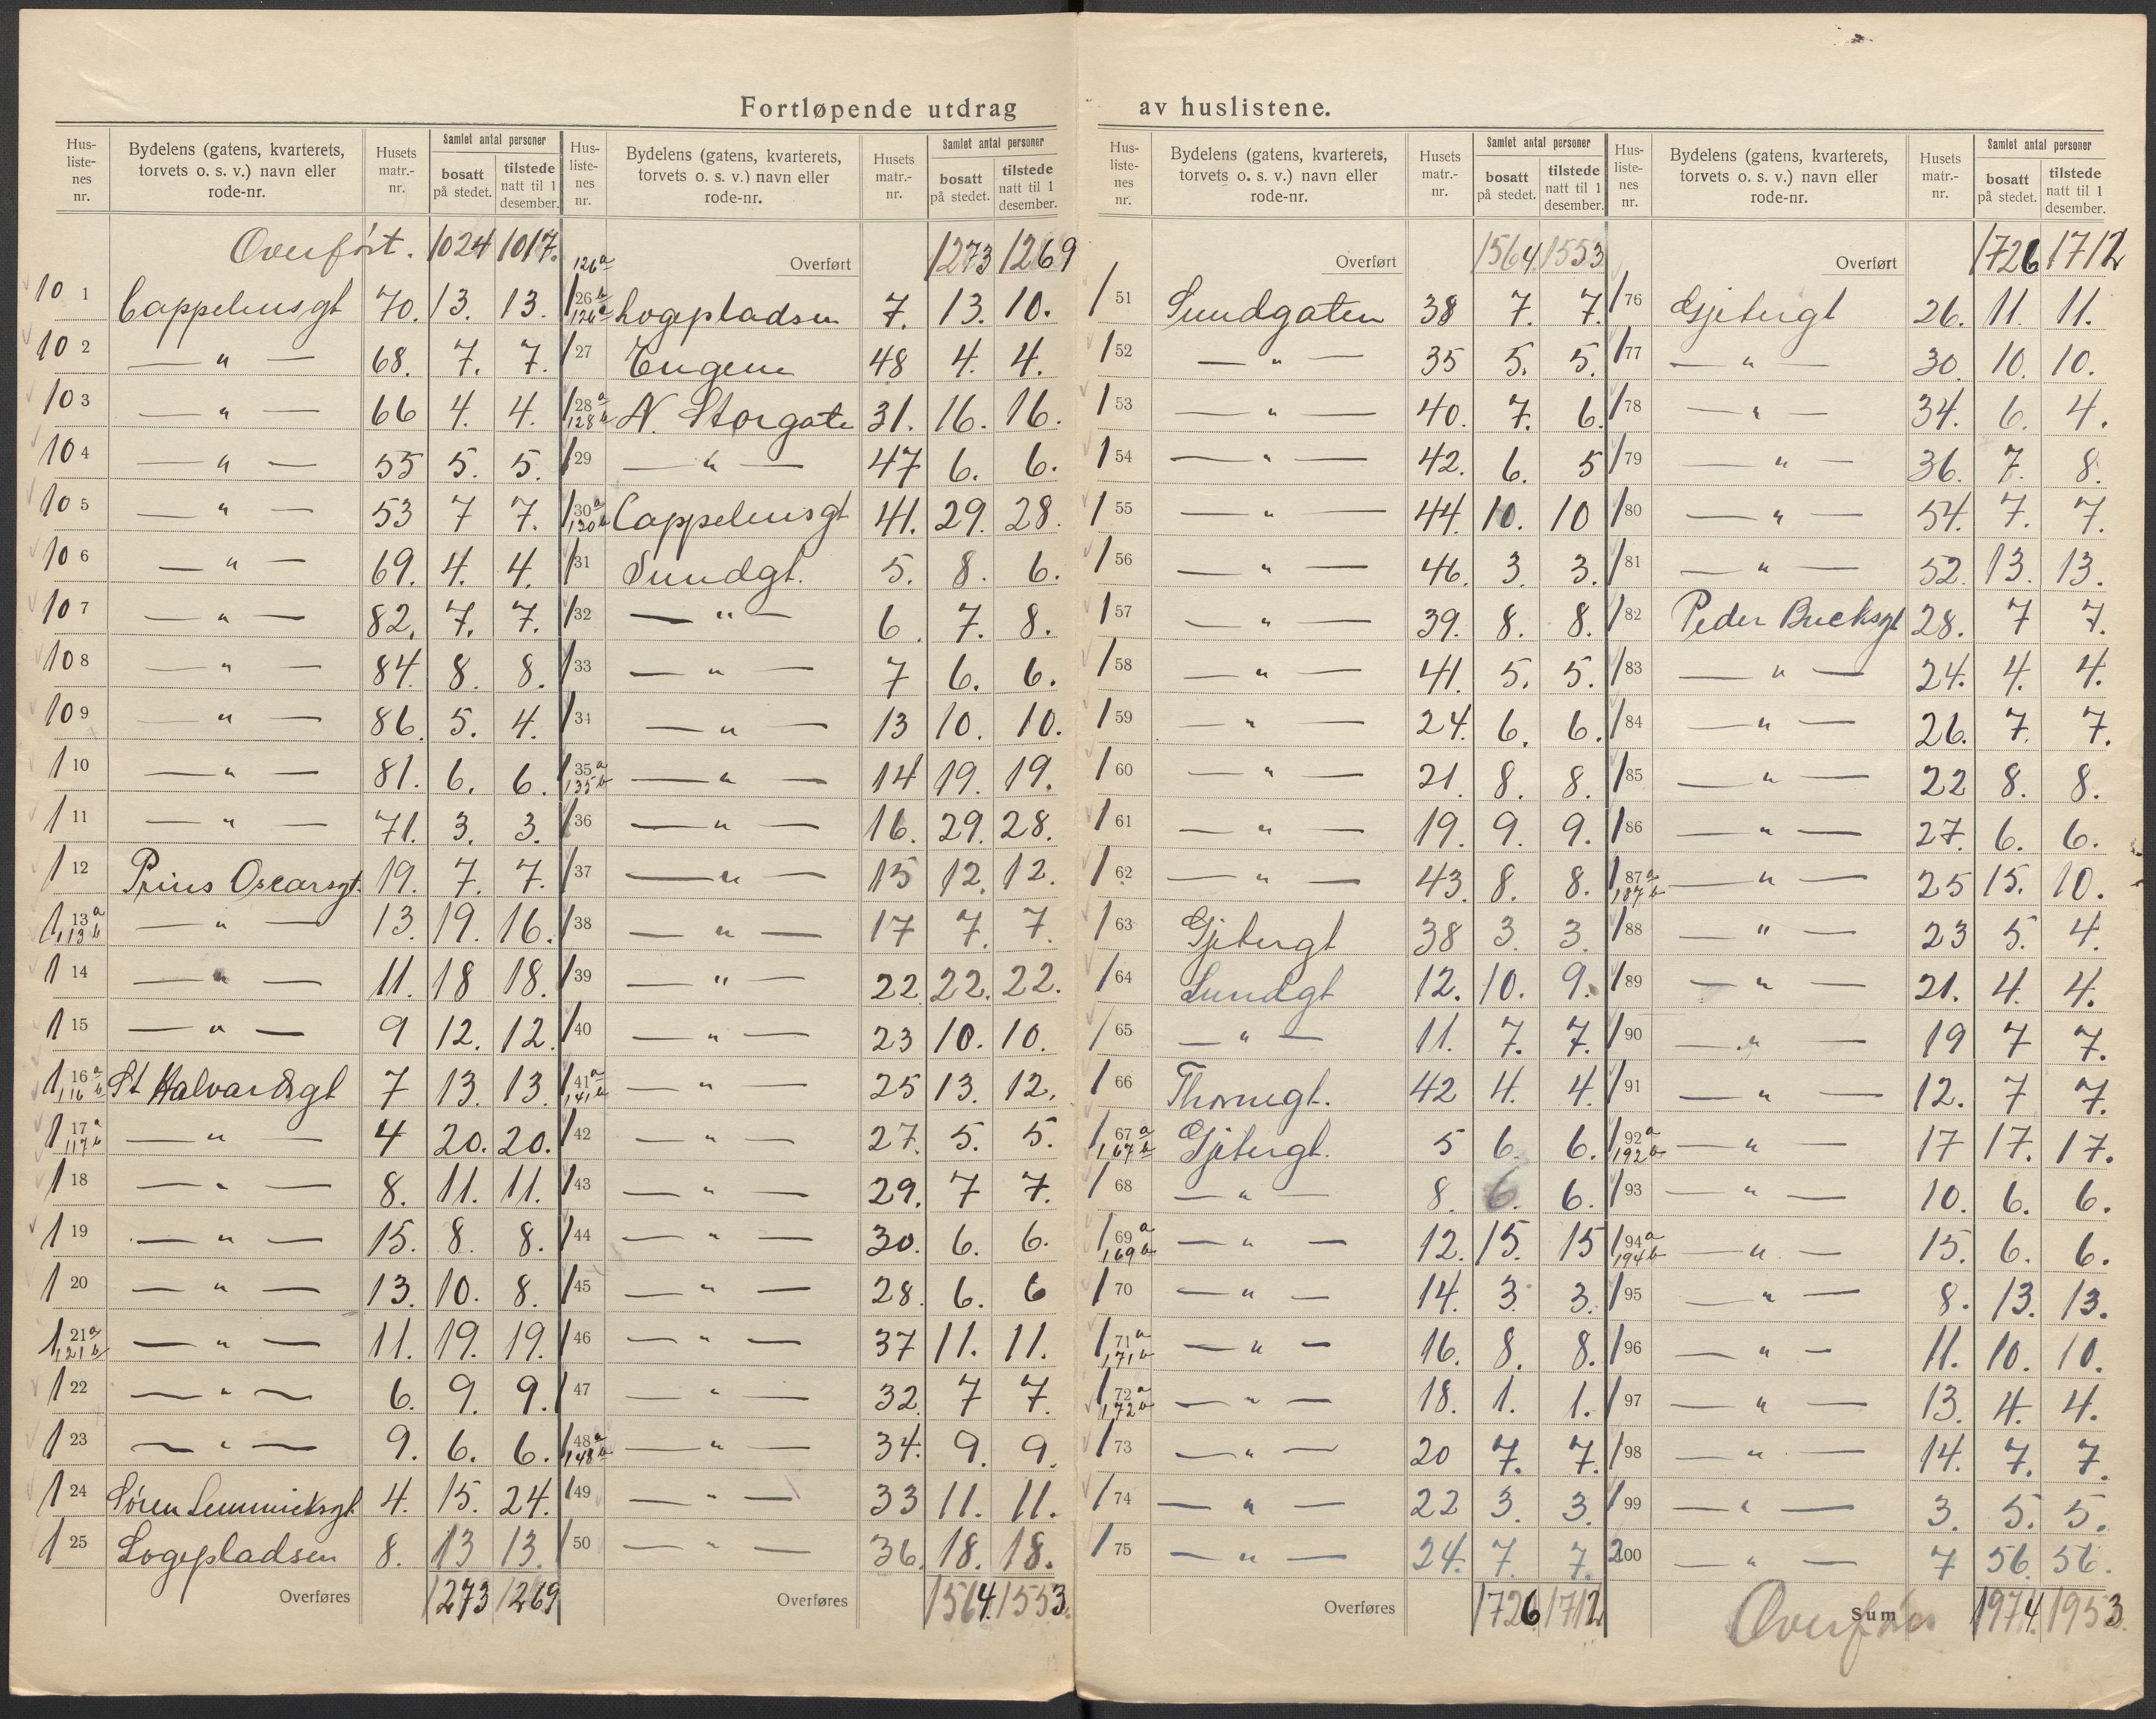 Fortløpende utdrag av huslistene.
Hus-liste-nes nr. | Bydelens (gatens, kvarterets, torvets o. s. v.) navn eller rode-nr. | Husets matr.-nr. | Samlet antal personer bosatt på stedet. | tilstede natt til 1 desember.
Overført. 1024 1017.
101 Cappelensgt 70. 13. 13.
102 — " — 68. 7. 7.
103 — " — 66 4. 4.
104 — " — 55 5. 5.
105 — " — 53 7 7.
106 — " — 69. 4. 4.
107 — " — 82. 7. 7.
108 — " — 84. 8. 8.
109 — " — 86. 5. 4.
110 — " — 81. 6. 6.
111 — " — 71. 3. 3.
112 Prins Oscarsgt. 19. 7. 7.
113a 113b — " — 13. 19. 16.
114 — " — 11. 18 18.
115 — " — 9 12. 12.
116a 116b St Halvardsgt 7 13. 13.
117a 117b — " — 4 20. 20.
118 — " — 8. 11. 11.
119 — " — 15. 8. 8.
120 — " — 13. 10. 8.
121a 121b — " — 11. 19. 19.
122 — " — 6. 9. 9.
123 — " — 9. 6. 6.
124 Søren Lemmichsgt 4. 15. 24.
125 Logepladsen 8. 13 13.
Overføres 1273 1269
Hus-liste-nes nr. | Bydelens (gatens, kvarterets, torvets o. s. v.) navn eller rode-nr. | Husets matr.-nr. | Samlet antal personer bosatt på stedet. | tilstede natt til 1 desember.
Overført 1273 1269
126a 126b 126c Logepladsen 7. 13. 10.
127 Engene 48 4. 4.
128a 128b N. Storgate 31. 16. 16.
129 — " — 47 6. 6.
130a 130b Cappelensgt 41. 29. 28.
131 Sundgt. 5. 8. 6.
132 — " — 6. 7. 8.
133 — " — 7 6. 6.
134 — " — 13 10. 10.
135a 135b — " — 14 19. 19.
136 — " — 16. 29. 28.
137 — " — 15 12. 12.
138 — " — 17 7. 7.
139 — " — 22 22. 22.
140 — " — 23 10. 10.
141a 141b — " — 25 13. 12.
142 — " — 27. 5. 5.
143 — " — 29. 7 7.
144 — " — 30. 6. 6.
145 — " — 28. 6. 6
146 — " — 37 11. 11.
147 — " — 32. 7 7.
148a 148b — " — 34. 9. 9.
149 — " — 33 11. 11.
150 — " — 36. 18. 18.
Overføres 1564. 1553.
Hus-liste-nes nr. | Bydelens (gatens, kvarterets, torvets o. s. v.) navn eller rode-nr. | Husets matr.-nr. | Samlet antal personer bosatt på stedet. | tilstede natt til 1 desember.
Overført 1564. 1553
151 Sundgaten 38 7. 7.
152 — " — 35 5. 5.
153 — " — 40. 7. 6.
154 — " — 42. 6. 5
155 — " — 44. 10. 10
156 — " — 46. 3. 3.
157 — " — 39. 8. 8.
158 — " — 41. 5. 5.
159 — " — 24. 6. 6.
160 — " — 21. 8. 8.
161 — " — 19. 9. 9.
162 — " — 43. 8. 8.
163 Gjetergt 38 3. 3.
164 Sundgt 12. 10. 9.
165 — " — 11. 7. 7.
166 Thornegt. 42 4. 4.
167a 167b Gjetergt. 5 6. 6.
168 — " — 8. 6. 6.
169a 169b — " — 12. 15. 15
170 — " — 14. 3. 3.
171a 171b — " — 16. 8. 8.
172a 172b — " — 18. 1. 1.
173 — " — 20 7. 7.
174 — " — 22 3. 3.
175 — " — 24. 7. 7.
Overføres 1726 1712
Hus-liste-nes nr. | Bydelens (gatens, kvarterets, torvets o. s. v.) navn eller rode-nr. | Husets matr.-nr. | Samlet antal personer bosatt på stedet. | tilstede natt til 1 desember.
Overført 1726 1712
176 Gjetergt 26. 11. 11.
177 — " — 30. 10. 10.
178 — " — 34. 6. 4.
179 — " — 36. 7. 8.
180 — " — 54. 7. 7.
181 — " — 52. 13. 13.
182 Peder Bucksgt 28. 7 7.
183 — " — 24. 4. 4.
184 — " — 26. 7. 7.
185 — " — 22 8. 8.
186 — " — 27. 6. 6.
187a 187b — " — 25 15. 10.
188 — " — 23 5. 4.
189 — " — 21. 4. 4.
190 — " — 19 7 7.
191 — " — 12. 7 7.
192a 192b — " — 17 17. 17.
193 — " — 10. 6. 6.
194a 194b — " — 15. 6. 6.
195 — " — 8. 13. 13.
196 — " — 11. 10. 10.
197 — " — 13. 4. 4.
198 — " — 14. 7. 7.
199 — " — 3. 5. 5.
200 — " — 7 56. 56.
Sum Overføres 1974. 1953.